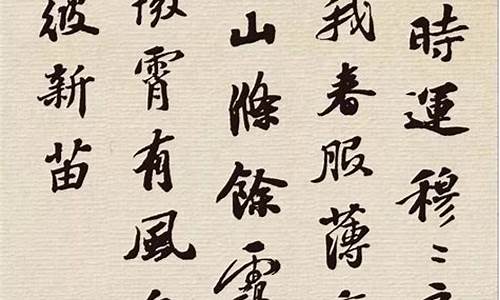 時運穆〻
我春服薄
山滌餘靄
微霄有風自
彼新苗